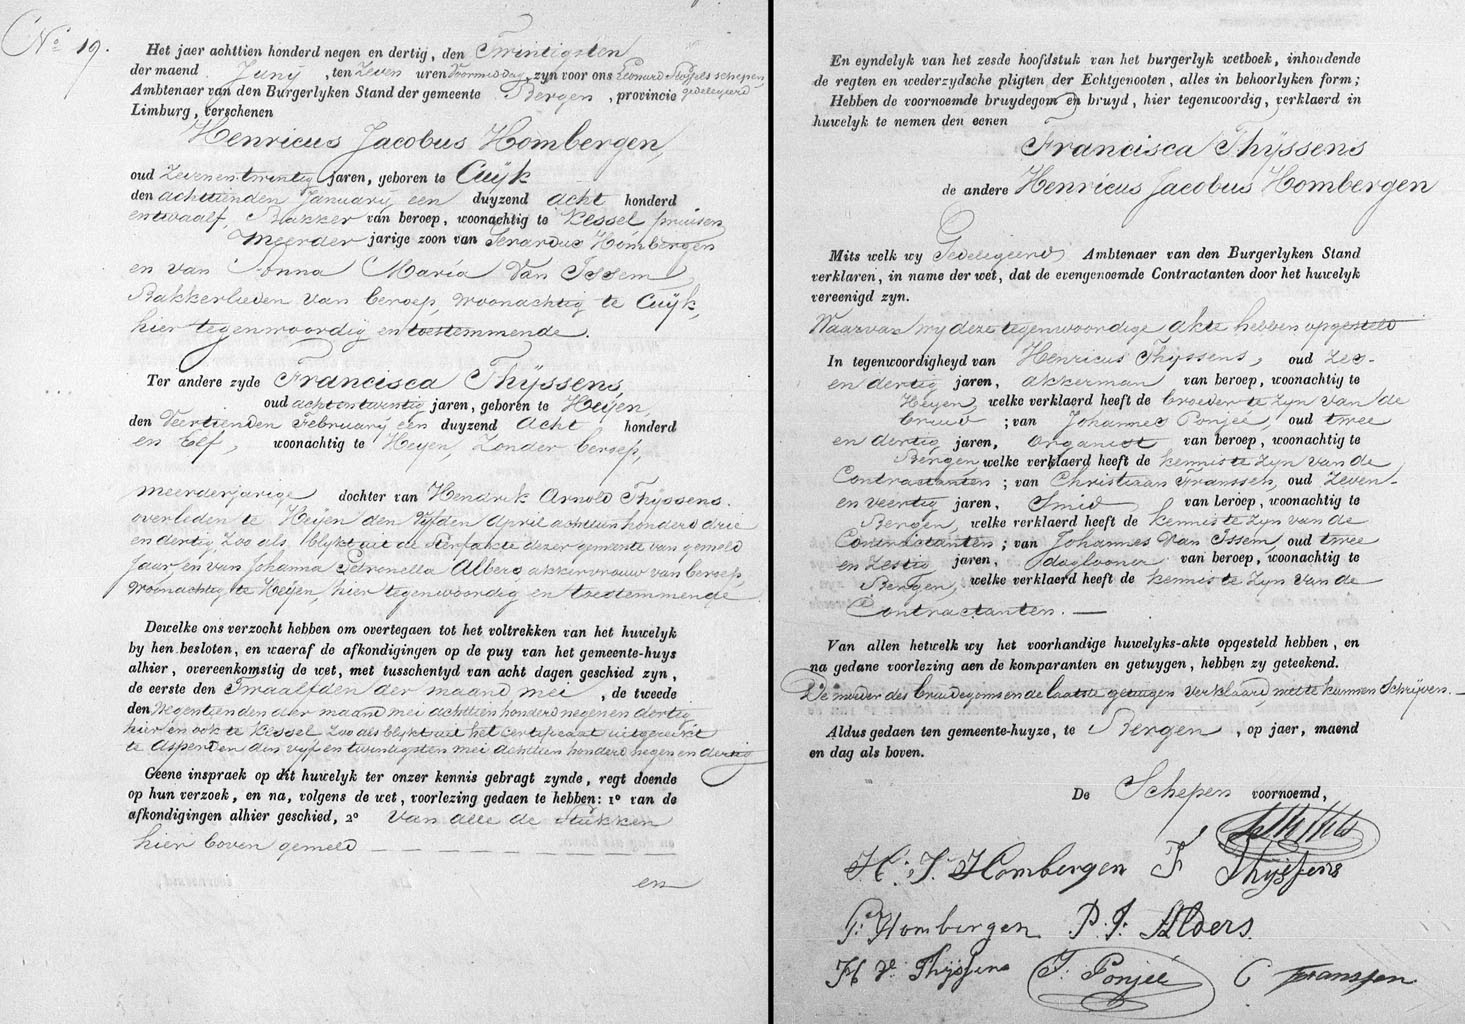 No 19.
Het jaer achttien honderd negen en dertig, den Twintigsten
der maend Junij, ten Zeven uren Voormiddag, zyn voor ons Leonard Stoffels schepen
Ambtenaer van den Burgerlyken Stand der gemeente Bergen, provincie gedelegeerd
Limburg, verschenen
Henricus Jacobus Hombergen,
oud Zevenentwintig jaren, geboren te Cuÿk
den achttienden Januarij een duyzend acht honderd
entwaalf, Bakker van beroep, woonachtig te Kessel pruisen
Meerder jarige zoon van Gerardus Hombergen
en van Anna Maria Van Issem
Bakkerlieden van beroep, woonachtig te Cuÿk,
hier tegenwoordig en toestemmende.
Ter andere zyde Francisca Thÿssens,
oud achtentwintig jaren, geboren te Heÿen,
den Veertienden Februarij een duyzend Acht honderd
en Elf, woonachtig te Heyen, Zonder beroep,
meerderjarige dochter van Hendrik Arnold Thÿssens.
overleden te Heÿen den Vijfden April achttien honderd drie
en dertig, Zoo als blykt uit de Sterfakte dezer gemeente van gemeld
Jaar, en van Johanna Petronella Albers akkervrouw van beroep,
Woonachtig te Heÿen, hier tegenwoordig en toestemmende
Dewelke ons verzocht hebben om overtegaen tot het voltrekken van het huwelyk
by hen besloten, en waeraf de afkondigingen op de puy van het gemeente-huys
alhier, overeenkomstig de wet, met tusschentyd van acht dagen geschied zyn,
de eerste den Twaalfden der maand mei, de tweede
den Negentienden der maand mei achttien honderd negen en dertig
hier en ook te Kessel Zoo als blykt uit het certificaat uitgereikt
te Asperden den vyf en twintigsten mei achttien honderd negen en dertig
Geene inspraek op dit huwelyk ter onzer kennis gebragt zynde, regt doende
op hun verzoek, en na, volgens de wet, voorlezing gedaen te hebben: 1° van de
afkondigingen alhier geschied, 2° Van alle de Stukken
hier boven gemeld
en
En eyndelyk van het zesde hoofdstuk van het burgerlyk wetboek, inhoudende
de regten en wederzydsche pligten der Echtgenooten, alles in behoorlyken form;
Hebben de voornoemde bruydegom en bruyd, hier tegenwoordig, verklaerd in
huwelyk te nemen den eenen
Francisca Thÿssens
de andere Henricus Jacobus Hombergen
Mits welk wy Gedelegeerd Ambtenaer van den Burgerlyken Stand
verklaren, in name der wet, dat de evengenoemde Contractanten door het huwelyk
vereenigd zyn.
Waarvan wy deze tegenwoordige akte hebben opgesteld
In tegenwoordigheyd van Henricus Thÿssens, oud zes-
en dertig jaren, akkerman van beroep, woonachtig te
Heyen, welke verklaerd heeft de broeder te zyn van de
bruid; van Johannes Ponjée, oud twee
en dertig jaren, organist van beroep, woonachtig te
Bergen welke verklaerd heeft de kennis te zyn van de
Contractanten; van Christiaan Franssen, oud Zeven-
en veertig jaren, Smid van beroep, woonachtig te
Bergen, welke verklaerd heeft de kennis te zyn van de
Contractanten; van Johannes Van Issem, oud twee
en Zestig jaren, daglooner van beroep, woonachtig te
Bergen, welke verklaerd heeft de kennis te zyn van de
Contractanten.
Van allen hetwelk wy het voorhandige huwelyks-akte opgesteld hebben, en
na gedane voorlezing aen de komparanten en getuygen, hebben zy geteekend.
De moeder des bruidegoms en de laatste getuigen Verklaard, niet te kunnen Schrijven.
Aldus gedaen ten gemeente-huyze, te Bergen, op jaer, maend
en dag als boven.
De Schepen voornoemd,
H: J. Hombergen F Thijssens
G: Hombergen P. J: Albers.
H A Thijssens J: Ponjeé C Franssen